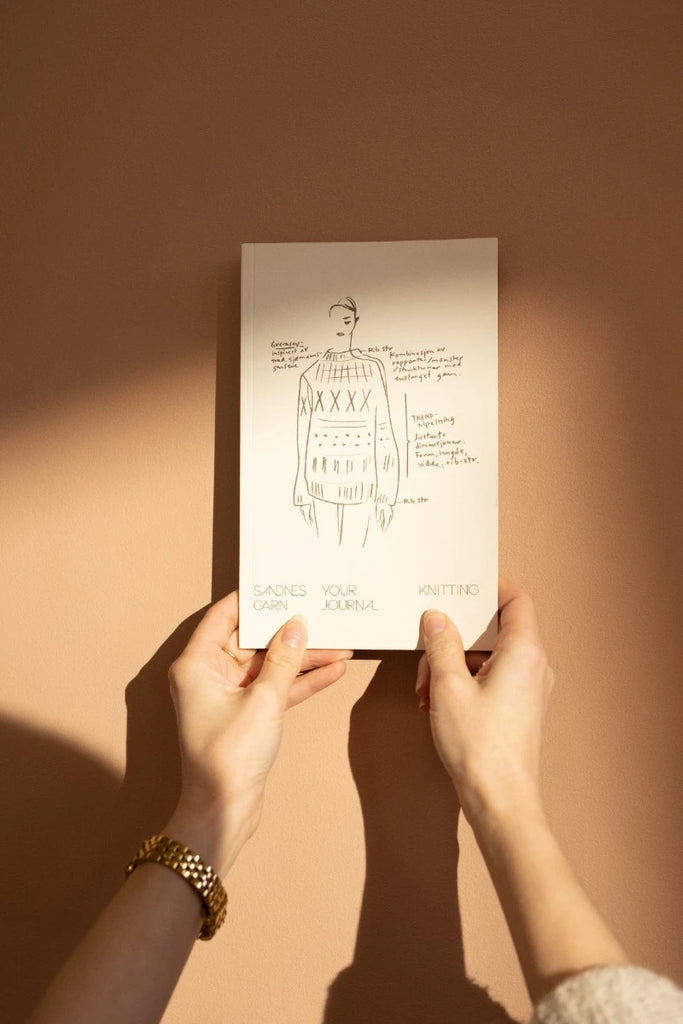 Genser-
inspirert av
trad. sjømanns-
gensere
Rib.str
Kombinasjon av
rapporter/mønster
/strukturer med
ensfarget garn.
TREND-
tilpasning
Justerte
dimensjoner.
Form, lengde,
vidde, rib-str.
Rib.str
SANDNES
GARN
YOUR
JOURNAL
KNITTING